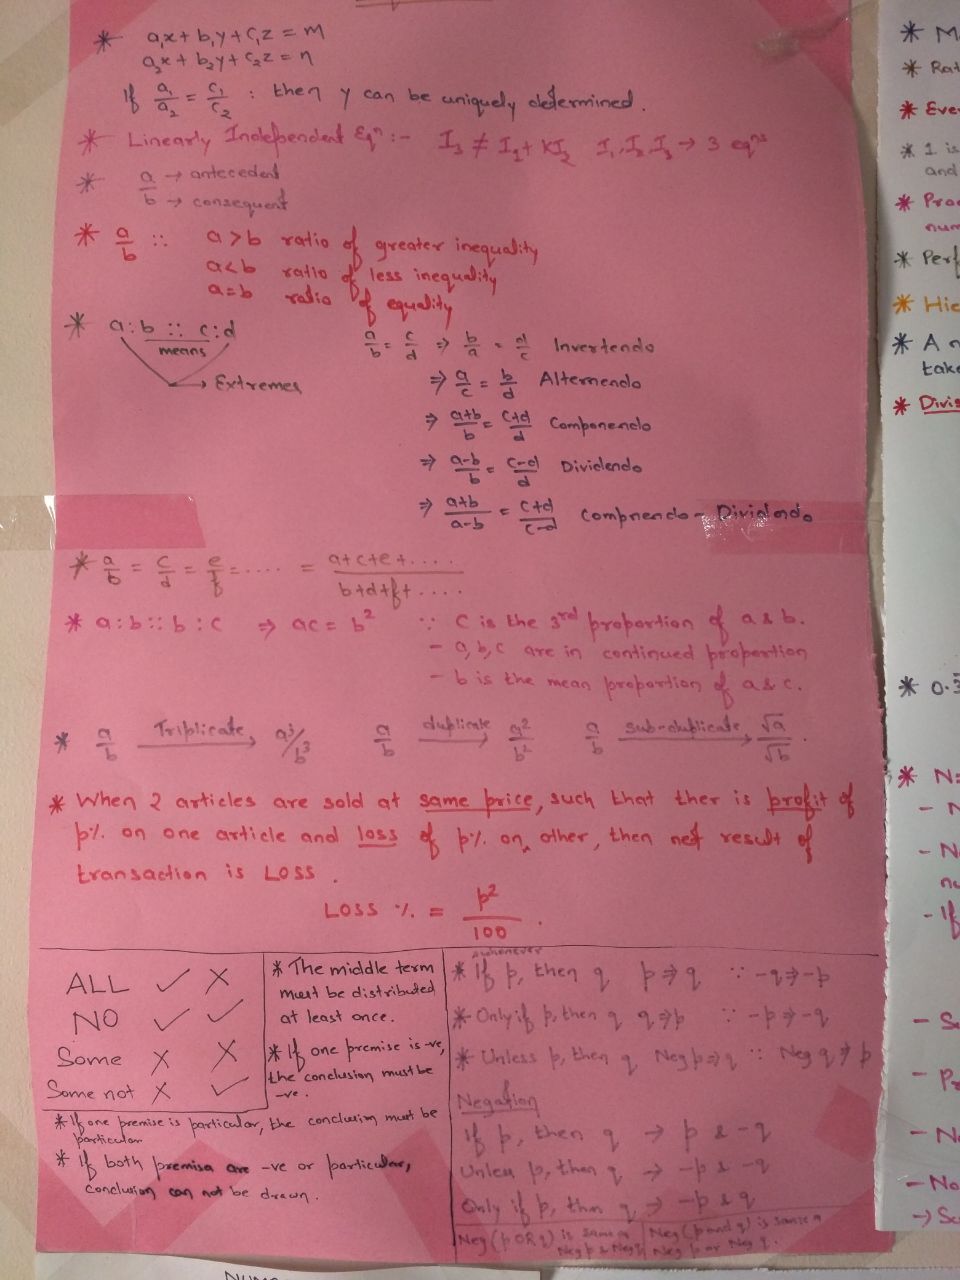 * a₁x + b₁y + c₁z = m
a₂x + b₂y + c₂z = n
If a₁/a₂ = c₁/c₂ : then y can be uniquely determined.
* Linearly Independent Eqⁿ :- I₃ ≠ I₁ + KI₂ I₁, I₂, I₃ → 3 eqⁿˢ
* a → antecedent
b → consequent
* a/b :: a > b ratio of greater inequality
a < b ratio of less inequality
a = b ratio of equality
* a : b :: c : d
means
→ Extremes
a/b = c/d ⇒ b/a = d/c Invertendo
⇒ a/c = b/d Alternendo
⇒ a+b/b = c+d/d Componendo
⇒ a-b/b = c-d/d Dividendo
⇒ a+b/a-b = c+d/c-d Compnendo - Dividendo
* a/b = c/d = e/f = .... = a+c+e+..../b+d+f+....
* a : b :: b : c ⇒ ac = b² ∵ c is the 3rd proportion of a & b.
- a, b, c are in continued proportion
- b is the mean proportion of a & c.
* a/b Triplicate → a³/b³ a/b duplicate → a²/b² a/b sub-duplicate → √a/√b .
* When 2 articles are sold at same price, such that ther is profit of
p% on one article and loss of p% on other, then net result of
transaction is LOSS .
LOSS % = p²/100 .
ALL ✓ ✗
NO ✓ ✓
Some ✗ ✗
Some not ✗ ✓
* The middle term
must be distributed
at least once.
* If one premise is -ve,
the conclusion must be
-ve.
* If one premise is particular, the conclusion must be
particular
* If both premisa are -ve or particular,
conclusion can not be drawn.
whenever
* If p, then q p ⇒ q ∵ -q ⇒ -p
* Only if p, then q q ⇒ p ∵ -p ⇒ -q
* Unless p, then q Neg p ⇒ q :: Neg q ⇒ p
Negation
If p, then q → p & -q
Unless p, then q → -p & -q
Only if p, then q → -p & q
Neg (p OR q) is same as
Neg p & Neg q
Neg (p and q) is same as
Neg p or Neg q.
* M
* Rat
* Eve
* 1 is
and
* Pro
num
* Perf
* Hic
* A n
take
* Divis
* 0.3
* N=
- N
- N
nu
- If
- S
- Pr
- N
- No
→ Sc
NUM